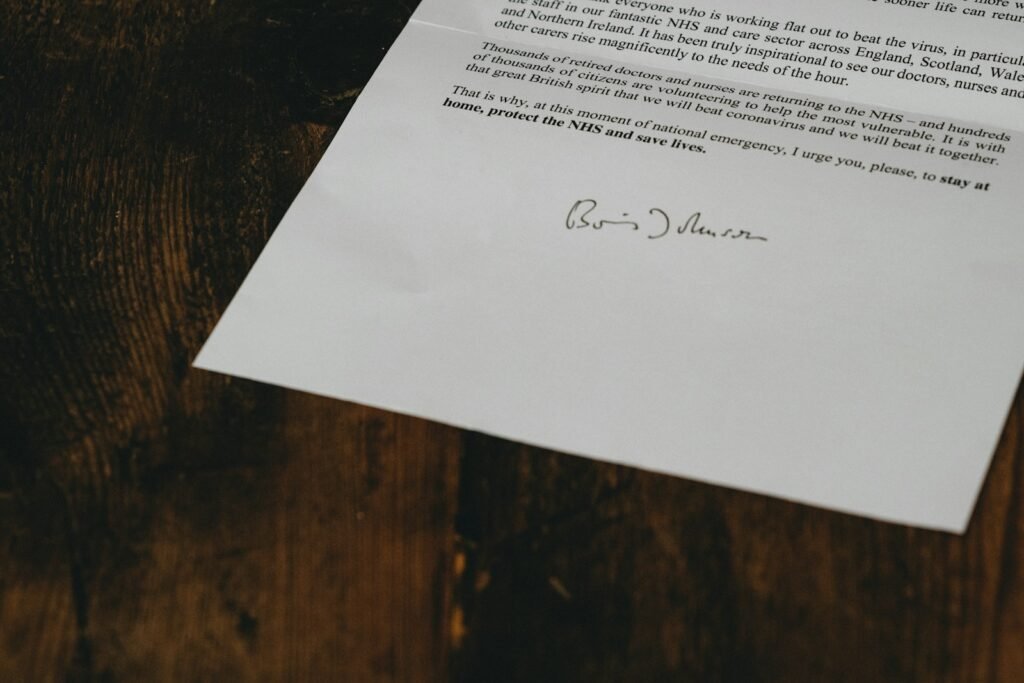 sooner life can retur
everyone who is working flat out to beat the virus, in particula
the staff in our fantastic NHS and care sector across England, Scotland, Wale
and Northern Ireland. It has been truly inspirational to see our doctors, nurses and
other carers rise magnificently to the needs of the hour.
Thousands of retired doctors and nurses are returning to the NHS – and hundreds
of thousands of citizens are volunteering to help the most vulnerable. It is with
that great British spirit that we will beat coronavirus and we will beat it together.
That is why, at this moment of national emergency, I urge you, please, to stay at
home, protect the NHS and save lives.
Boris Johnson